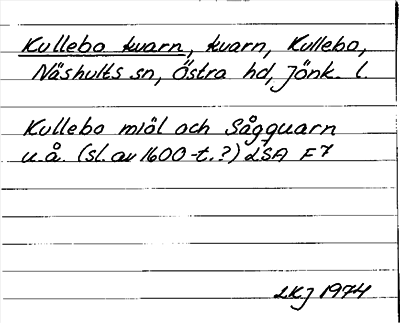 Kullebo kvarn, kvarn, Kullebo,
Näshults sn, Östra hd, Jönk. l.
Kullebo miöl och Sågquarn
u.å. (sl. av 1600-t.?) LSA F7
LKJ 1974